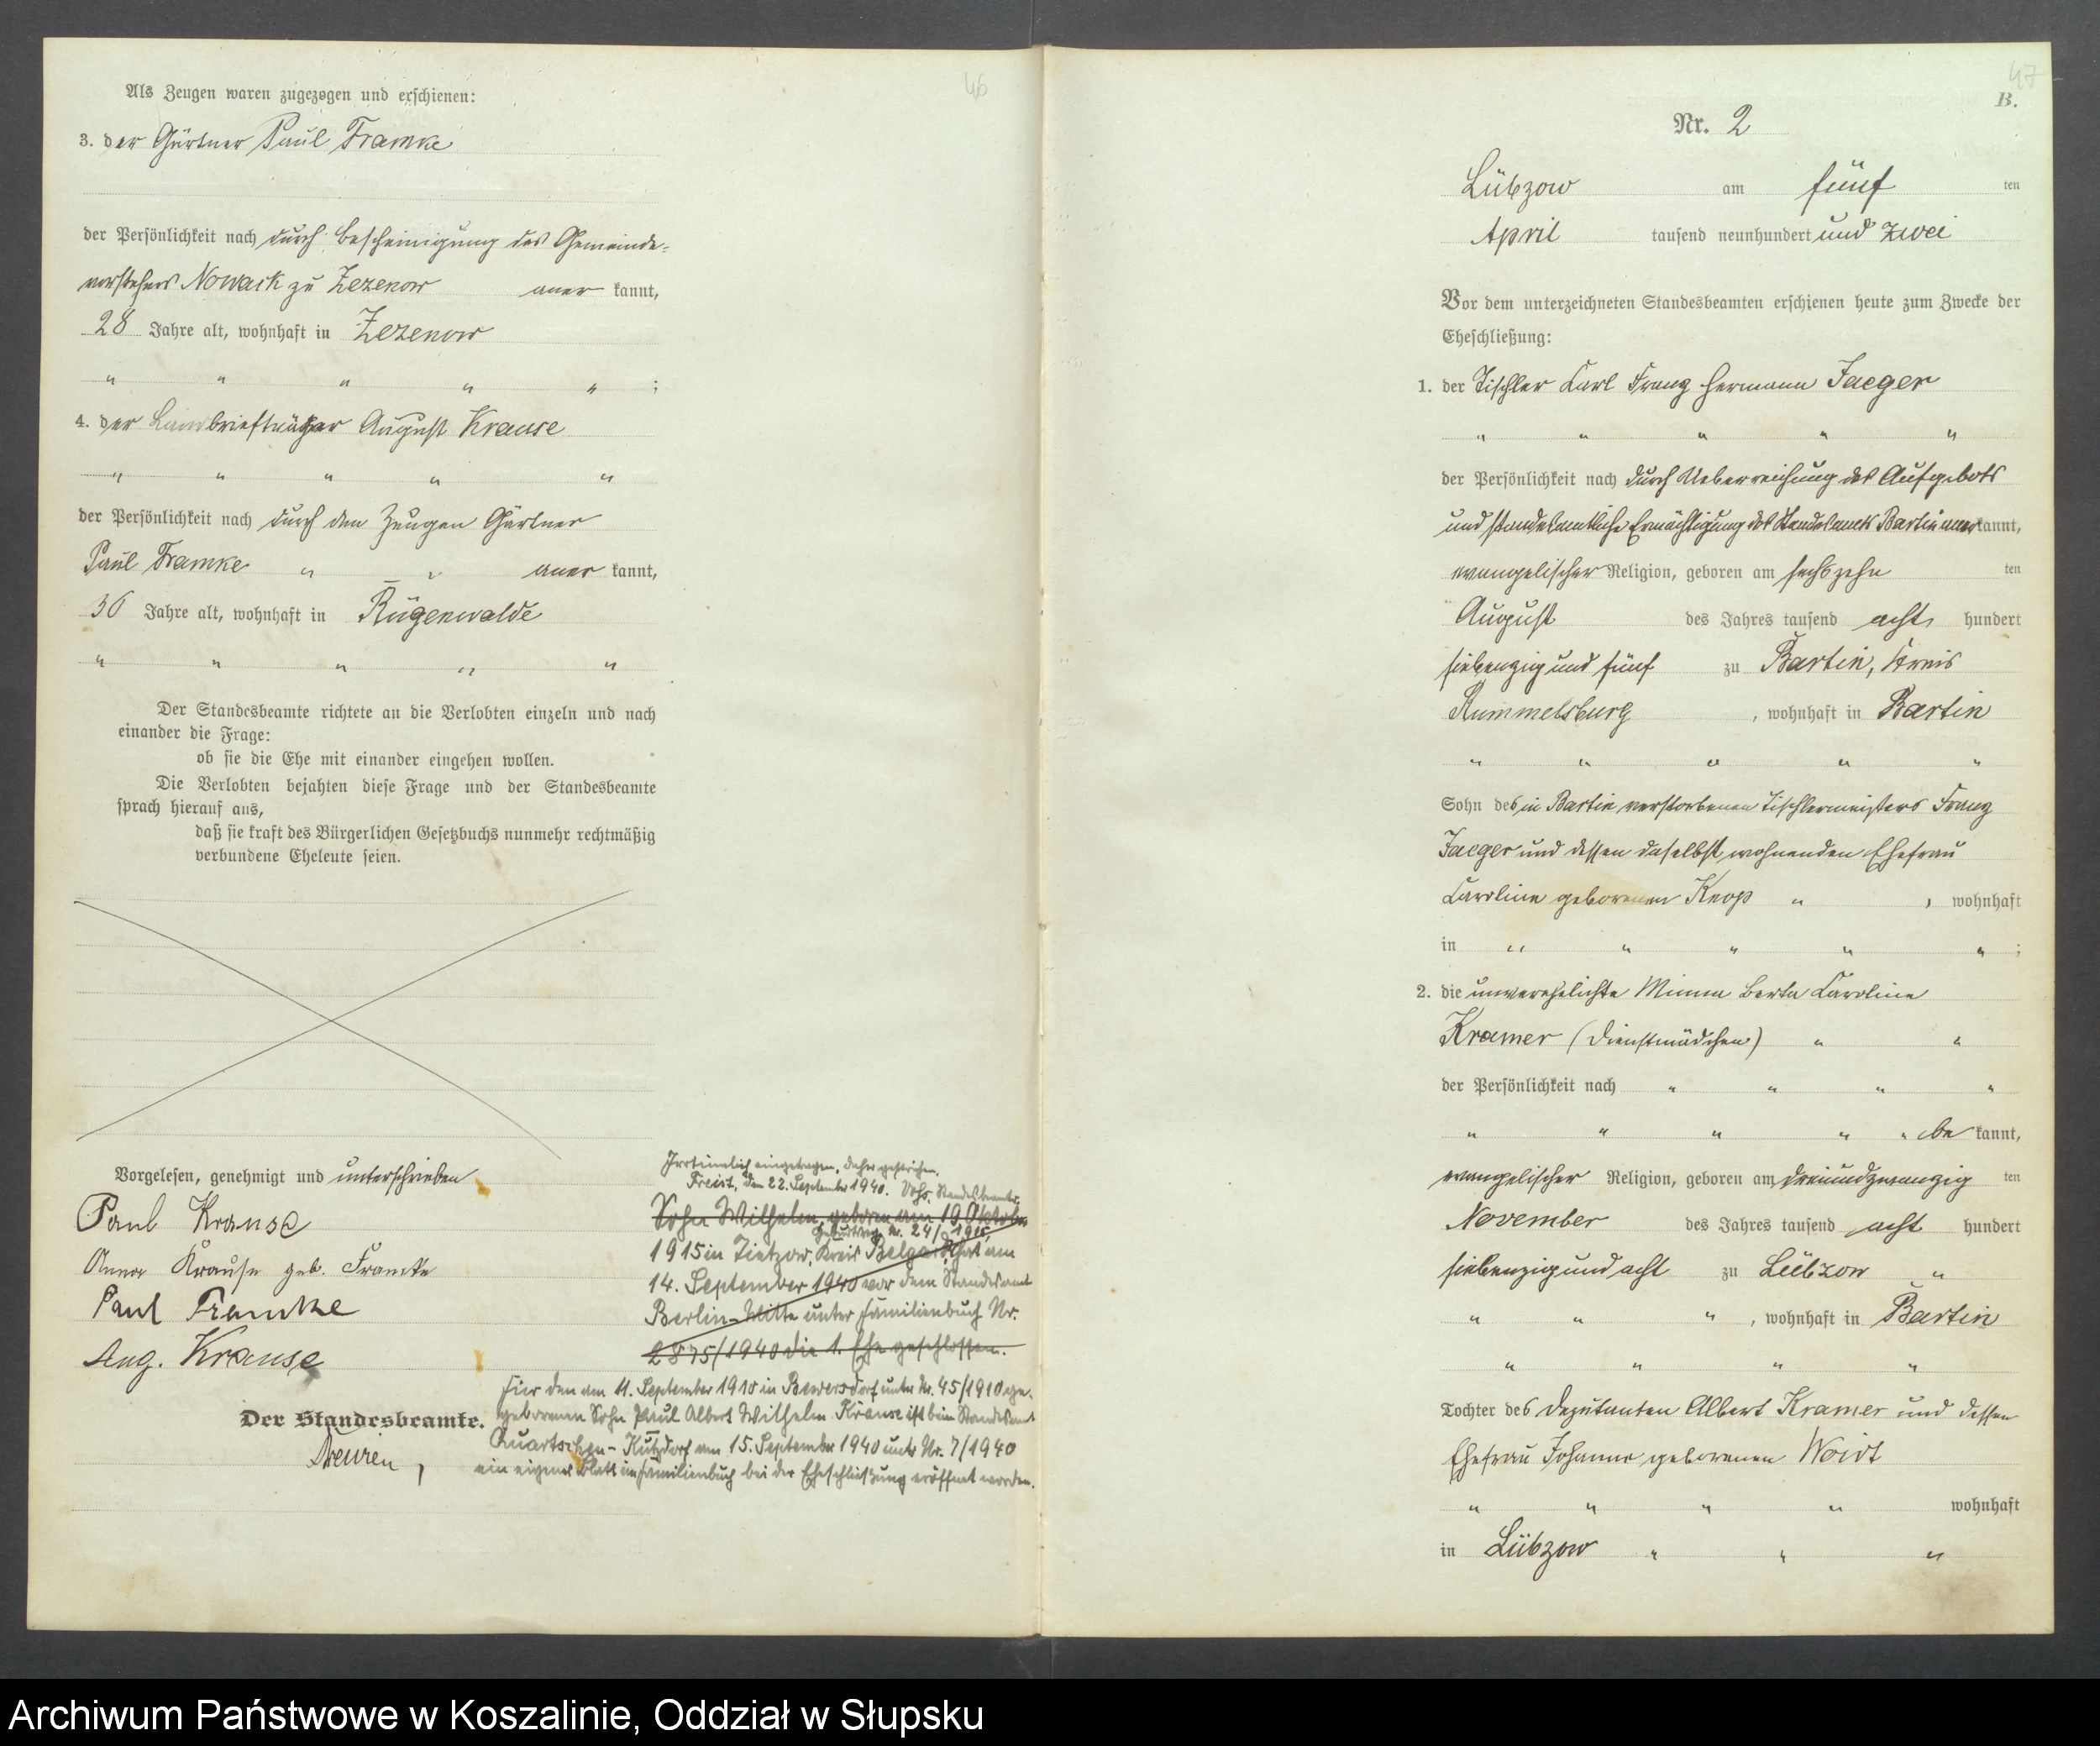 46
Als Zeugen waren zugezogen und erschienen:
3. der Gärtner Paul Framke
der Persönlichkeit nach durch Bescheinigung des Gemeinde-
vorstehers Nowack zu Zezenow aner kannt,
28 Jahre alt, wohnhaft in Zezenow
" " " " " ;
4. der Landbriefträger August Krause
" " " " "
der Persönlichkeit nach durch den Zeugen Gärtner
Paul Framke " " aner kannt,
36 Jahre alt, wohnhaft in Rügenwalde
" " " " "
Der Standesbeamte richtete an die Verlobten einzeln und nach
einander die Frage:
ob sie die Ehe mit einander eingehen wollen.
Die Verlobten bejahten diese Frage und der Standesbeamte
sprach hierauf aus,
daß sie kraft des Bürgerlichen Gesetzbuchs nunmehr rechtmäßig
verbundene Eheleute seien.
Vorgelesen, genehmigt und unterschrieben
Paul Krause
Anna Krause geb. Framke
Paul Framke
Aug. Krause
Der Standesbeamte.
Irrtümlich eingetragen, daher gestrichen.
Freist, den 22. September 1940. Standesbeamter
Sohn Wilhelm, geboren am 19. Oktober
Geburtsreg. Nr. 24/1915,
1915 in Zietzow, Kreis Belgard, hat am
14. September 1940 vor dem Standesamt
Berlin-Mitte unter Familienbuch Nr.
2875/1940 die 1. Ehe geschlossen.
Für den am 11. September 1910 in Bewersdorf unter Nr. 45/1910 ge-
geborenen Sohn Paul Albert Wilhelm Krause ist beim Standesamt
Quartschen-Kutzdorf am 15. September 1940 unter Nr. 7/1940
ein eigenes Blatt im Familienbuch bei der Eheschließung eröffnet worden.
47
B.
Nr. 2
Lübzow am fünf ten
April tausend neunhundert und zwei
Vor dem unterzeichneten Standesbeamten erschienen heute zum Zwecke der
Eheschließung:
1. der Tischler Carl Franz Hermann Jaeger
" " " " "
der Persönlichkeit nach durch Ueberreichung des Aufgebots
und standesamtliche Ermächtigung des Standesamts Bartin aner kannt,
evangelischer Religion, geboren am sechszehn ten
August des Jahres tausend acht hundert
siebenzig und fünf zu Bartin, Kreis
Rummelsburg , wohnhaft in Bartin
" " " " "
Sohn des in Bartin verstorbenen Tischlermeisters Franz
Jaeger und dessen daselbst wohnenden Ehefrau
Caroline geborenen Knop " , wohnhaft
in " " " " " ;
2. die unverehelichte Minna Berta Caroline
Kramer (Dienstmädchen) " "
der Persönlichkeit nach " " " "
" " " " " be kannt,
evangelischer Religion, geboren am dreiundzwanzig ten
November des Jahres tausend acht hundert
siebenzig und acht zu Lübzow "
" " " , wohnhaft in Bartin
" " " "
Tochter des Deputanten Albert Kramer und dessen
Ehefrau Johanne geborenen Woidt
" " " " wohnhaft
in Lübzow " " "
Archiwum Państwowe w Koszalinie, Oddział w Słupsku